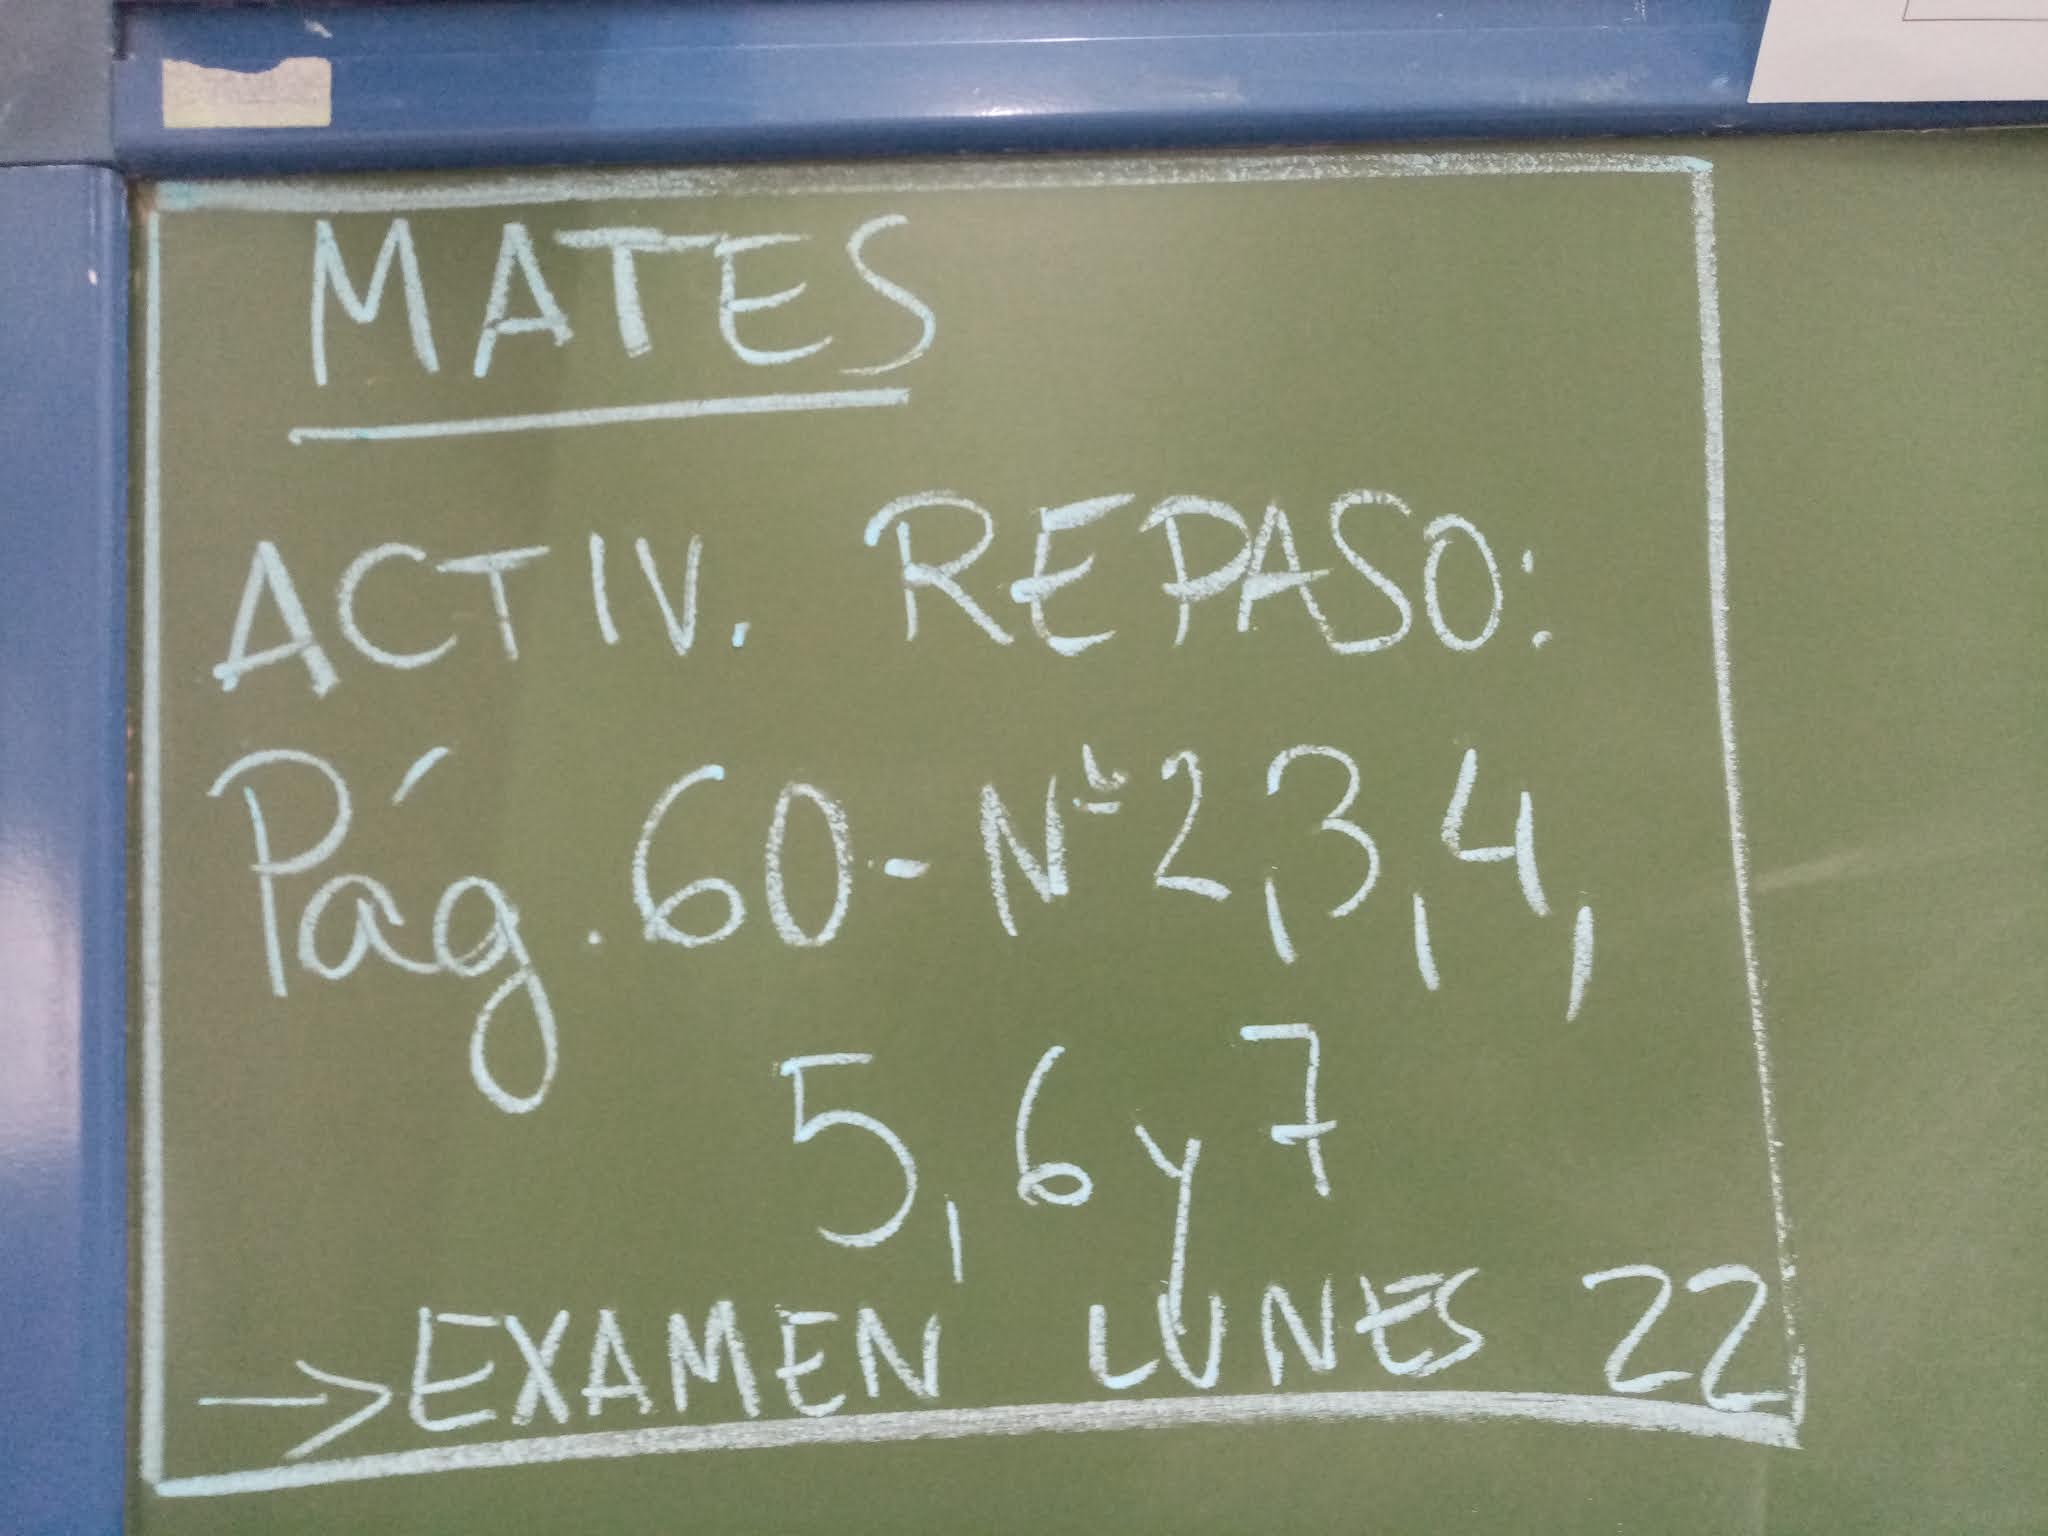 MATES
ACTIV. REPASO:
Pág. 60 - Nº 2, 3, 4,
5, 6 y 7
→ EXAMEN LUNES 22